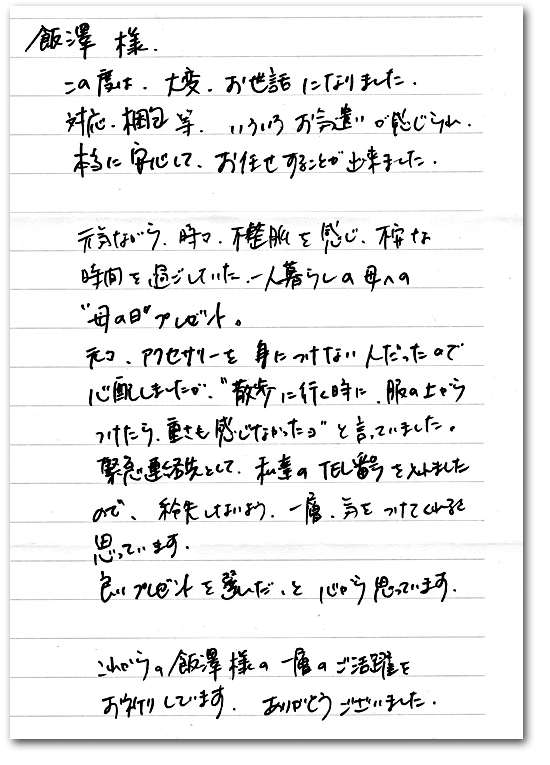 飯澤 様.
この度は、大変、お世話になりました.
対応、梱包等、いろいろお気遣いが感じられ、
本当に安心して、お任せすることが出来ました.
元気ながら、時々、不整脈を感じ、不安な
時間を過ごしていた、一人暮らしの母への
"母の日"プレゼント。
元々、アクセサリーを身につけない人だったので
心配しましたが、"散歩に行く時に、服の上から
つけたら、重さも感じなかったヨ"と言っていました。
緊急連絡先として、私達のTEL番号を入れました
ので、紛失しないよう、一層、気をつけてくれると
思っています.
良いプレゼントを選んだ、と心から思っています.
これからの飯澤様の一層のご活躍を
お祈りしています. ありがとうございました.